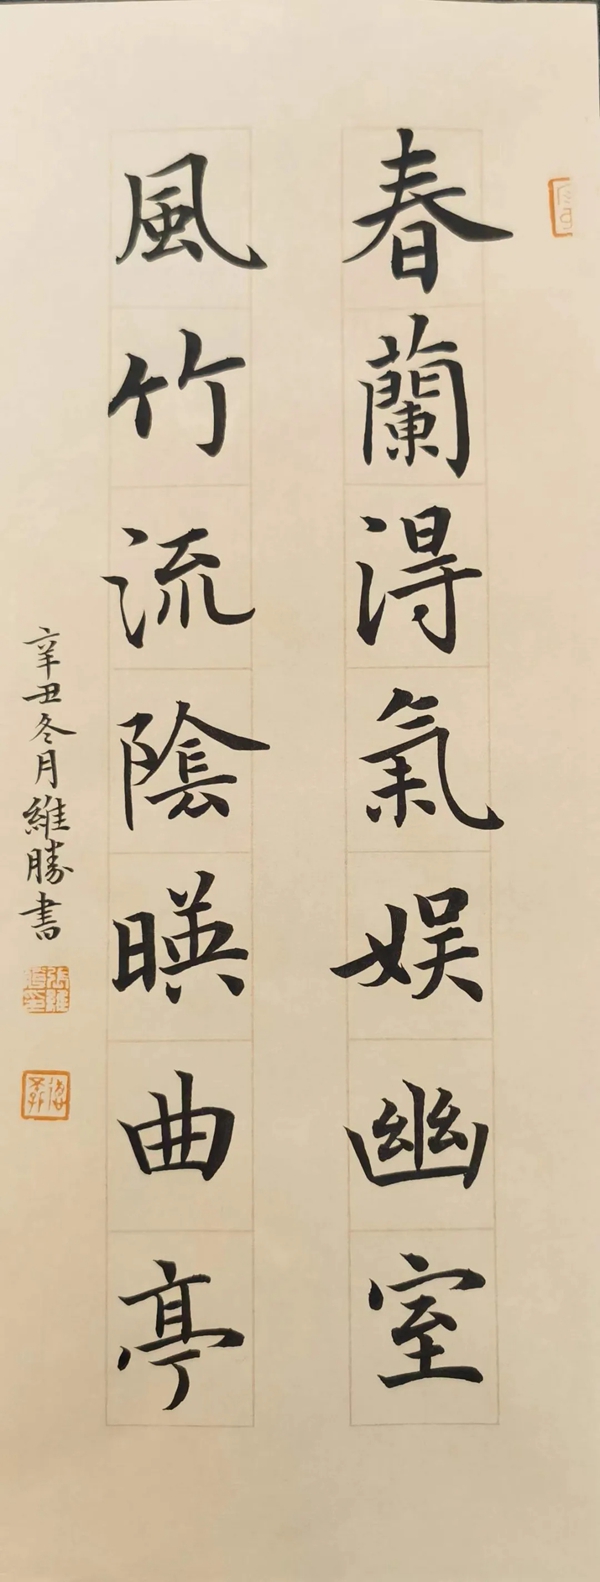 春蘭得氣娱幽室
風竹流陰暎曲亭
辛丑冬月維勝書